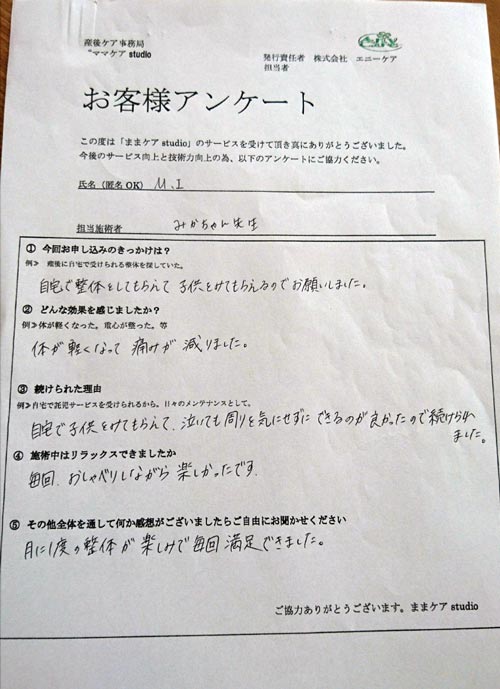 産後ケア事務局
“ママケア studio
発行責任者 株式会社 エニーケア
担当者
お客様アンケート
この度は「ままケア studio」のサービスを受けて頂き真にありがとうございました。
今後のサービス向上と技術力向上の為、以下のアンケートにご協力ください。
氏名（匿名 OK） M.I
担当施術者 みかちゃん先生
① 今回お申し込みのきっかけは？
例≫ 産後に自宅で受けられる整体を探していた。
自宅で整体をしてもらえて 子供をみてもらえるのでお願いしました。
② どんな効果を感じましたか？
例≫体が軽くなった。重心が整った。等
体が軽くなって 痛みが 減りました。
③ 続けられた理由
例≫自宅で託児サービスを受けられるから。日々のメンテナンスとして。
自宅で子供をみてもらえて、泣いても周りを気にせずに できるのが良かったので続けられ
ました。
④ 施術中はリラックスできましたか
毎回、おしゃべりしながら 楽しかったです.
⑤ その他全体を通して何か感想がございましたらご自由にお聞かせください
月に1度の整体が 楽しみで毎回 満足できました。
ご協力ありがとうございます。ままケア studio